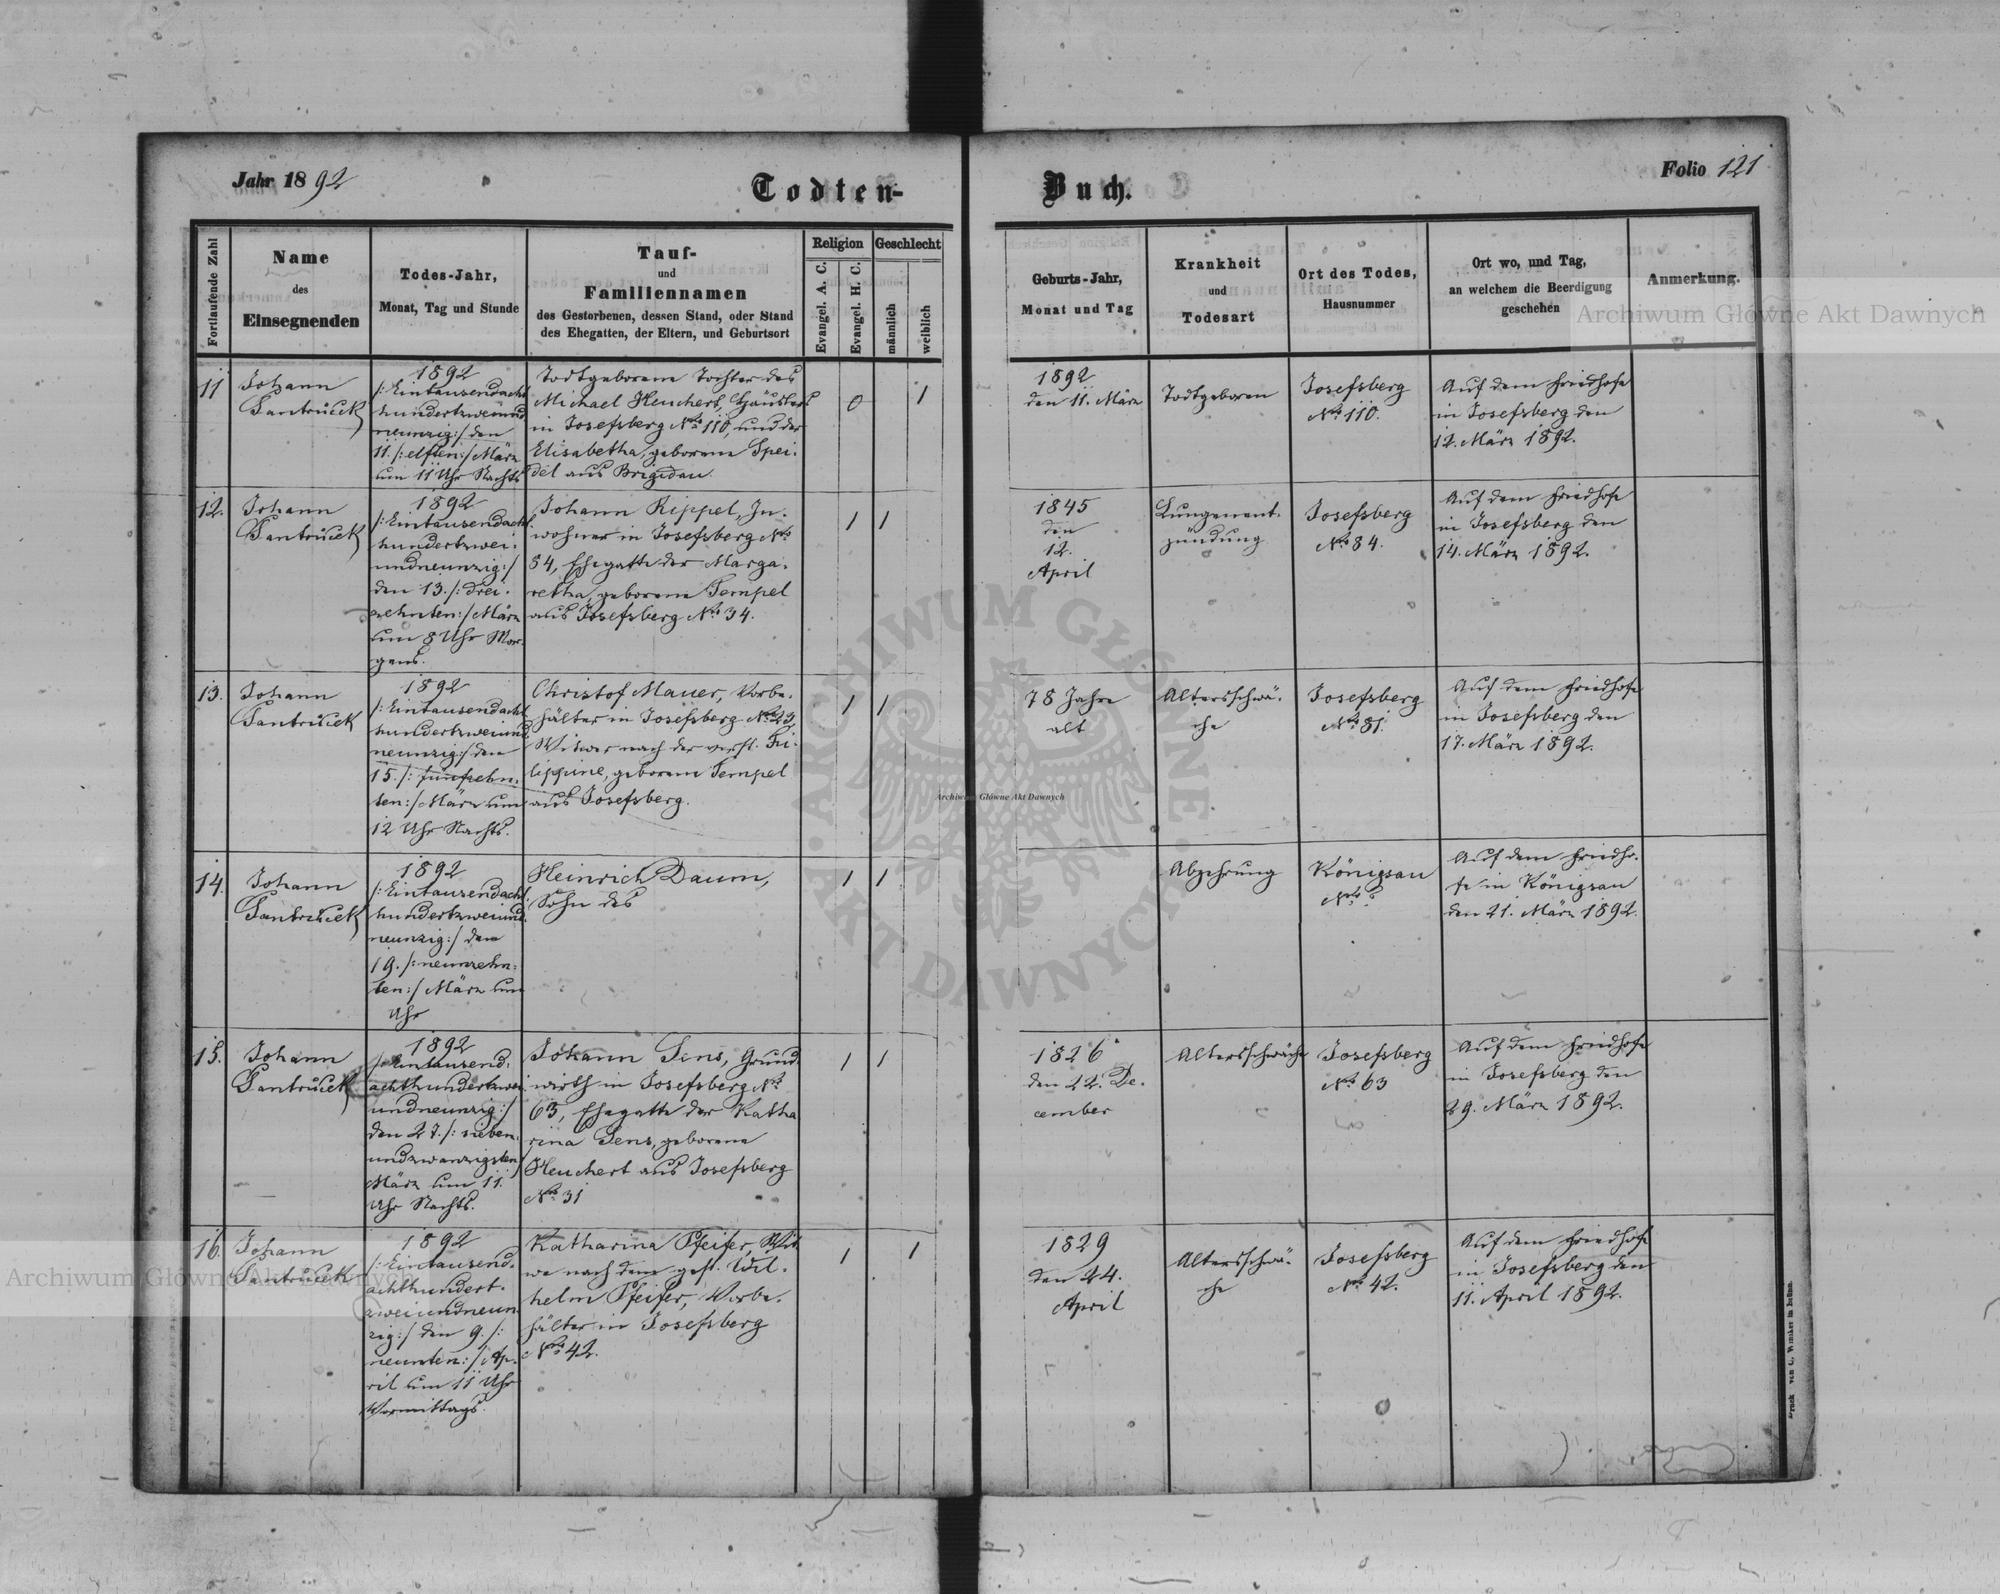 Jahr 1892
Todten-
Buch.
Folio 121
Fortlaufende Zahl
Name
des
Einsegnenden
Todes-Jahr,
Monat, Tag und Stunde
Tauf-
und
Familiennamen
des Gestorbenen, dessen Stand, oder Stand
des Ehegatten, der Eltern, und Geburtsort
Religion
Evangel. A. C.
Evangel. H. C.
Geschlecht
männlich
weiblich
Geburts-Jahr,
Monat und Tag
Krankheit
und
Todesart
Ort des Todes,
Hausnummer
Ort wo, und Tag,
an welchem die Beerdigung
geschehen
Anmerkung.
11
Johann
Santrůček
1892
/: Eintausendacht
hundertzweiund
neunzig :/ den
11. /: elften :/ März
um 11 Uhr Nachts
Todtgeborene Tochter des
Michael Heuchert, Häuslers
in Josefsberg Nro 110, und der
Elisabetha, geborene Spei-
del aus Brigidau.
0
1
1892
den 11. März
Todtgeboren
Josefsberg
Nro 110.
Auf dem Friedhofe
in Josefsberg den
12. März 1892.
12.
Johann
Santrůček
1892
/: Eintausendacht
hundertzwei-
undneunzig :/
den 13. /: drei-
zehnten :/ März
um 8 Uhr Mor-
gens.
Johann Rippel, In-
wohner in Josefsberg Nro
84, Ehegatte der Marga-
retha, geborene Tempel
aus Josefsberg Nro 34.
1
1
1845
den
12.
April
Lungenent-
zündung
Josefsberg
Nro 84.
Auf dem Friedhofe
in Josefsberg den
14. März 1892.
13.
Johann
Santrůček
1892
/: Eintausendacht
hundertzweiund
neunzig :/ den
15. /: fünfzehn-
ten :/ März um
12 Uhr Nachts.
Christof Mauer, Vorbe-
hälter in Josefsberg Nro 23,
Witwer nach der verst. Fi-
lippine, geborene Tempel
aus Josefsberg.
1
1
78 Jahre
alt
Altersschwä-
che
Josefsberg
Nro 81.
Auf dem Friedhofe
in Josefsberg den
17. März 1892.
14.
Johann
Santrůček
1892
/: Eintausendacht
hundertzweiund
neunzig :/ den
19. /: neunzehn-
ten :/ März um
Uhr
Heinrich Daum,
Sohn des
1
1
Abzehrung
Königsau
Nro
Auf dem Friedho-
fe in Königsau
den 21. März 1892.
15.
Johann
Santrůček
1892
/: Eintausend-
achthundertzwei
undneunzig :/
den 27. /: sieben-
undzwanzigsten
März um 11
Uhr Nachts.
Johann Sens, Grund
wirth in Josefsberg Nro
63, Ehegatte der Katha
rina Sens, geborene
Heuchert aus Josefsberg
Nro 31
1
1
1826
den 22. De-
cember
Altersschwäche
Josefsberg
Nro 63
Auf dem Friedhofe
in Josefsberg den
29. März 1892.
16.
Johann
Santrůček
1892
/: Eintausend-
achthundert-
zweiundneun
zig :/ den 9. /:
neunten :/ Ap-
ril um 11 Uhr
Vormittags.
Katharina Pfeifer, Wit
we nach dem gest. Wil-
helm Pfeifer, Vorbe-
hälter in Josefsberg
Nro 42.
1
1
1829
den 24.
April
Altersschwä-
che
Josefsberg
Nro 42.
Auf dem Friedhofe
in Josefsberg den
11. April 1892.
Archiwum Główne Akt Dawnych
Archiwum Główne Akt Dawnych
Archiwum Główne Akt Dawnych
ARCHIWUM GŁÓWNE · AKT DAWNYCH ·